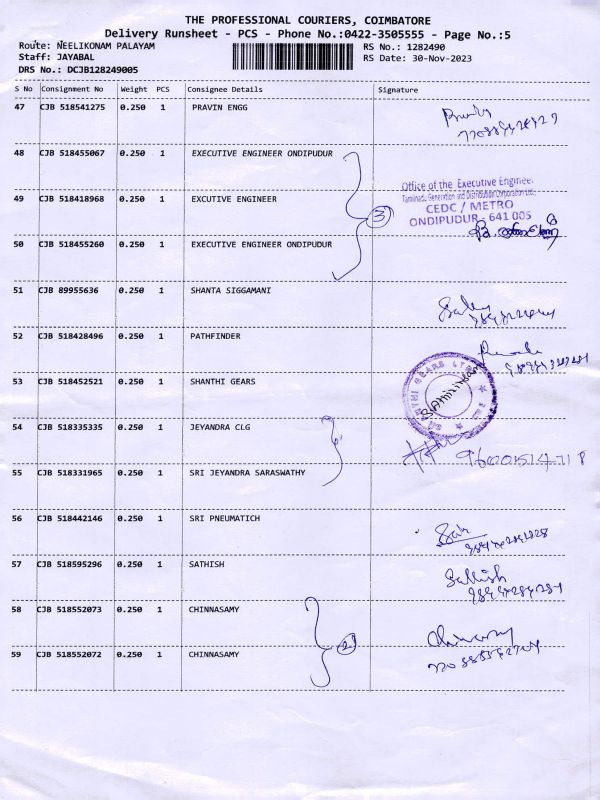 THE PROFESSIONAL COURIERS, COIMBATORE
Delivery Runsheet - PCS - Phone No.:0422-3505555 - Page No.:5
Route: NEELIKONAM PALAYAM RS No.: 1282490
Staff: JAYABAL RS Date: 30-Nov-2023
DRS No.: DCJB128249005
S No Consignment No Weight PCS Consignee Details Signature
47 CJB 518541275 0.250 1 PRAVIN ENGG
48 CJB 518455067 0.250 1 EXECUTIVE ENGINEER ONDIPUDUR
Office of the Executive Engineer
49 CJB 518418968 0.250 1 EXCUTIVE ENGINEER
Tamilnadu Generation and Distribution Corporation Ltd.,
CEDC / METRO
3
ONDIPUDUR - 641 005
50 CJB 518455260 0.250 1 EXECUTIVE ENGINEER ONDIPUDUR
51 CJB 89955636 0.250 1 SHANTA SIGGAMANI
52 CJB 518428496 0.250 1 PATHFINDER
53 CJB 518452521 0.250 1 SHANTHI GEARS
54 CJB 518335335 0.250 1 JEYANDRA CLG
55 CJB 518331965 0.250 1 SRI JEYANDRA SARASWATHY
56 CJB 518442146 0.250 1 SRI PNEUMATICH
57 CJB 518595296 0.250 1 SATHISH
Sathish
58 CJB 518552073 0.250 1 CHINNASAMY
2
59 CJB 518552072 0.250 1 CHINNASAMY